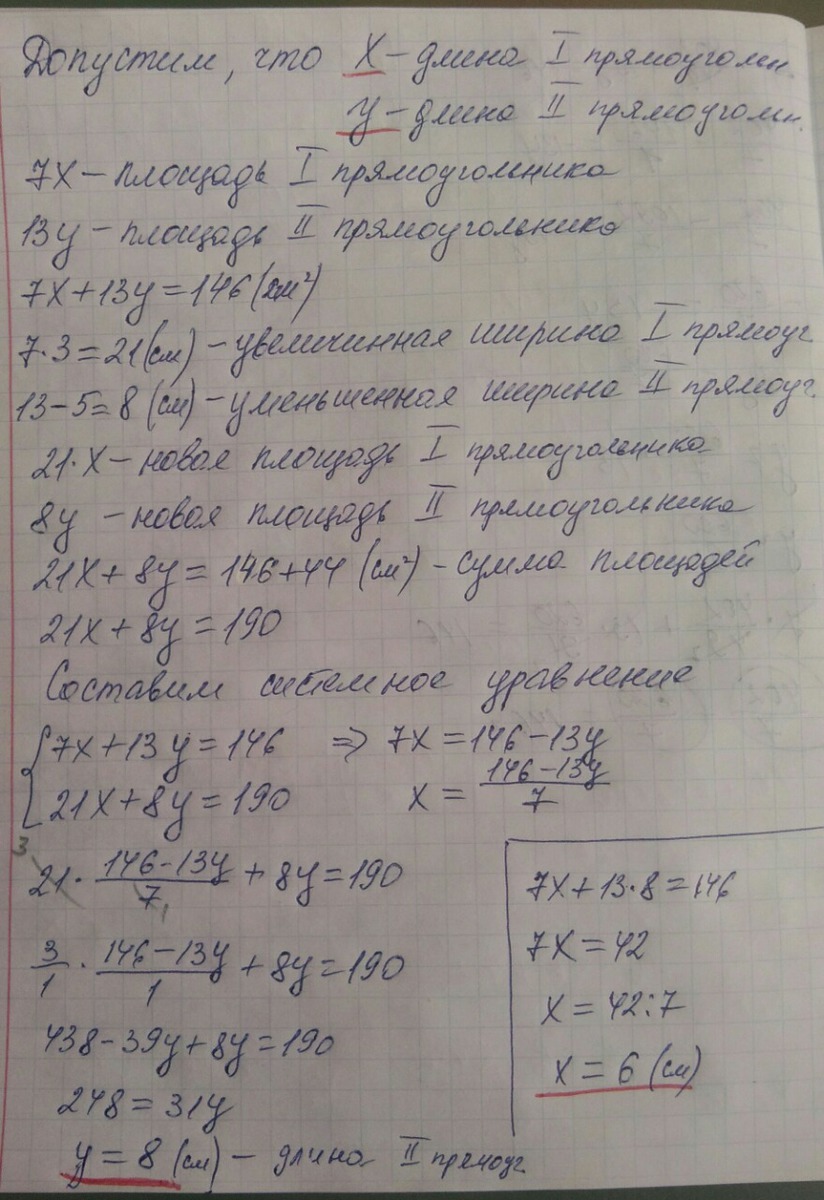 Допустим, что X – длина I прямоугольн.
y – длина II прямоугольн.
7X – площадь I прямоугольника
13y – площадь II прямоугольника
7X+13y=146(см²)
7·3=21(см) – увеличинная ширина I прямоуг.
13-5=8(см) – уменьшенная ширина II прямоуг.
21·X – новая площадь I прямоугольника
8y – новая площадь II прямоугольника
21X+8y=146+44 (см²) – сумма площадей
21X+8y=190
Составим системное уравнение
{7X+13y=146 => 7X=146-13y
21X+8y=190 X = (146-13y)/7
21·(146-13y)/7+8y=190
3 1
3/1·(146-13y)/1+8y=190
438-39y+8y=190
248=31y
y=8(см) – длина II прямоуг.
7X+13·8=146
7X=42
X=42:7
X=6(см)